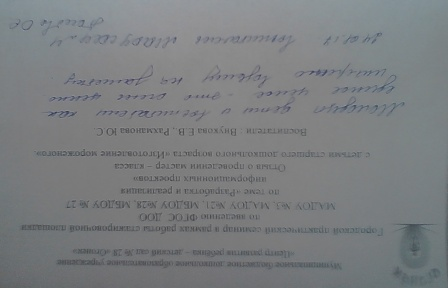 Муниципальное бюджетное дошкольное образовательное учреждение
«Центр развития ребёнка – детский сад № 28 «Огонёк»
Городской практический семинар в рамках работы стажировочной площадки
по введению ФГОС ДОО
МАДОУ №3, МАДОУ №21, МБДОУ №28, МБДОУ № 27
по теме «Разработка и реализация
информационных проектов»
Отзыв о проведении мастер – класса
с детьми старшего дошкольного возраста «Изготовление мороженого».
Воспитатели : Внукова Е.В., Рахманова Ю.С.
Молодцы дети и воспитатели как
единое целое - это очень ценно
на заметку
24.01.17 Воспитатели МАДОУ